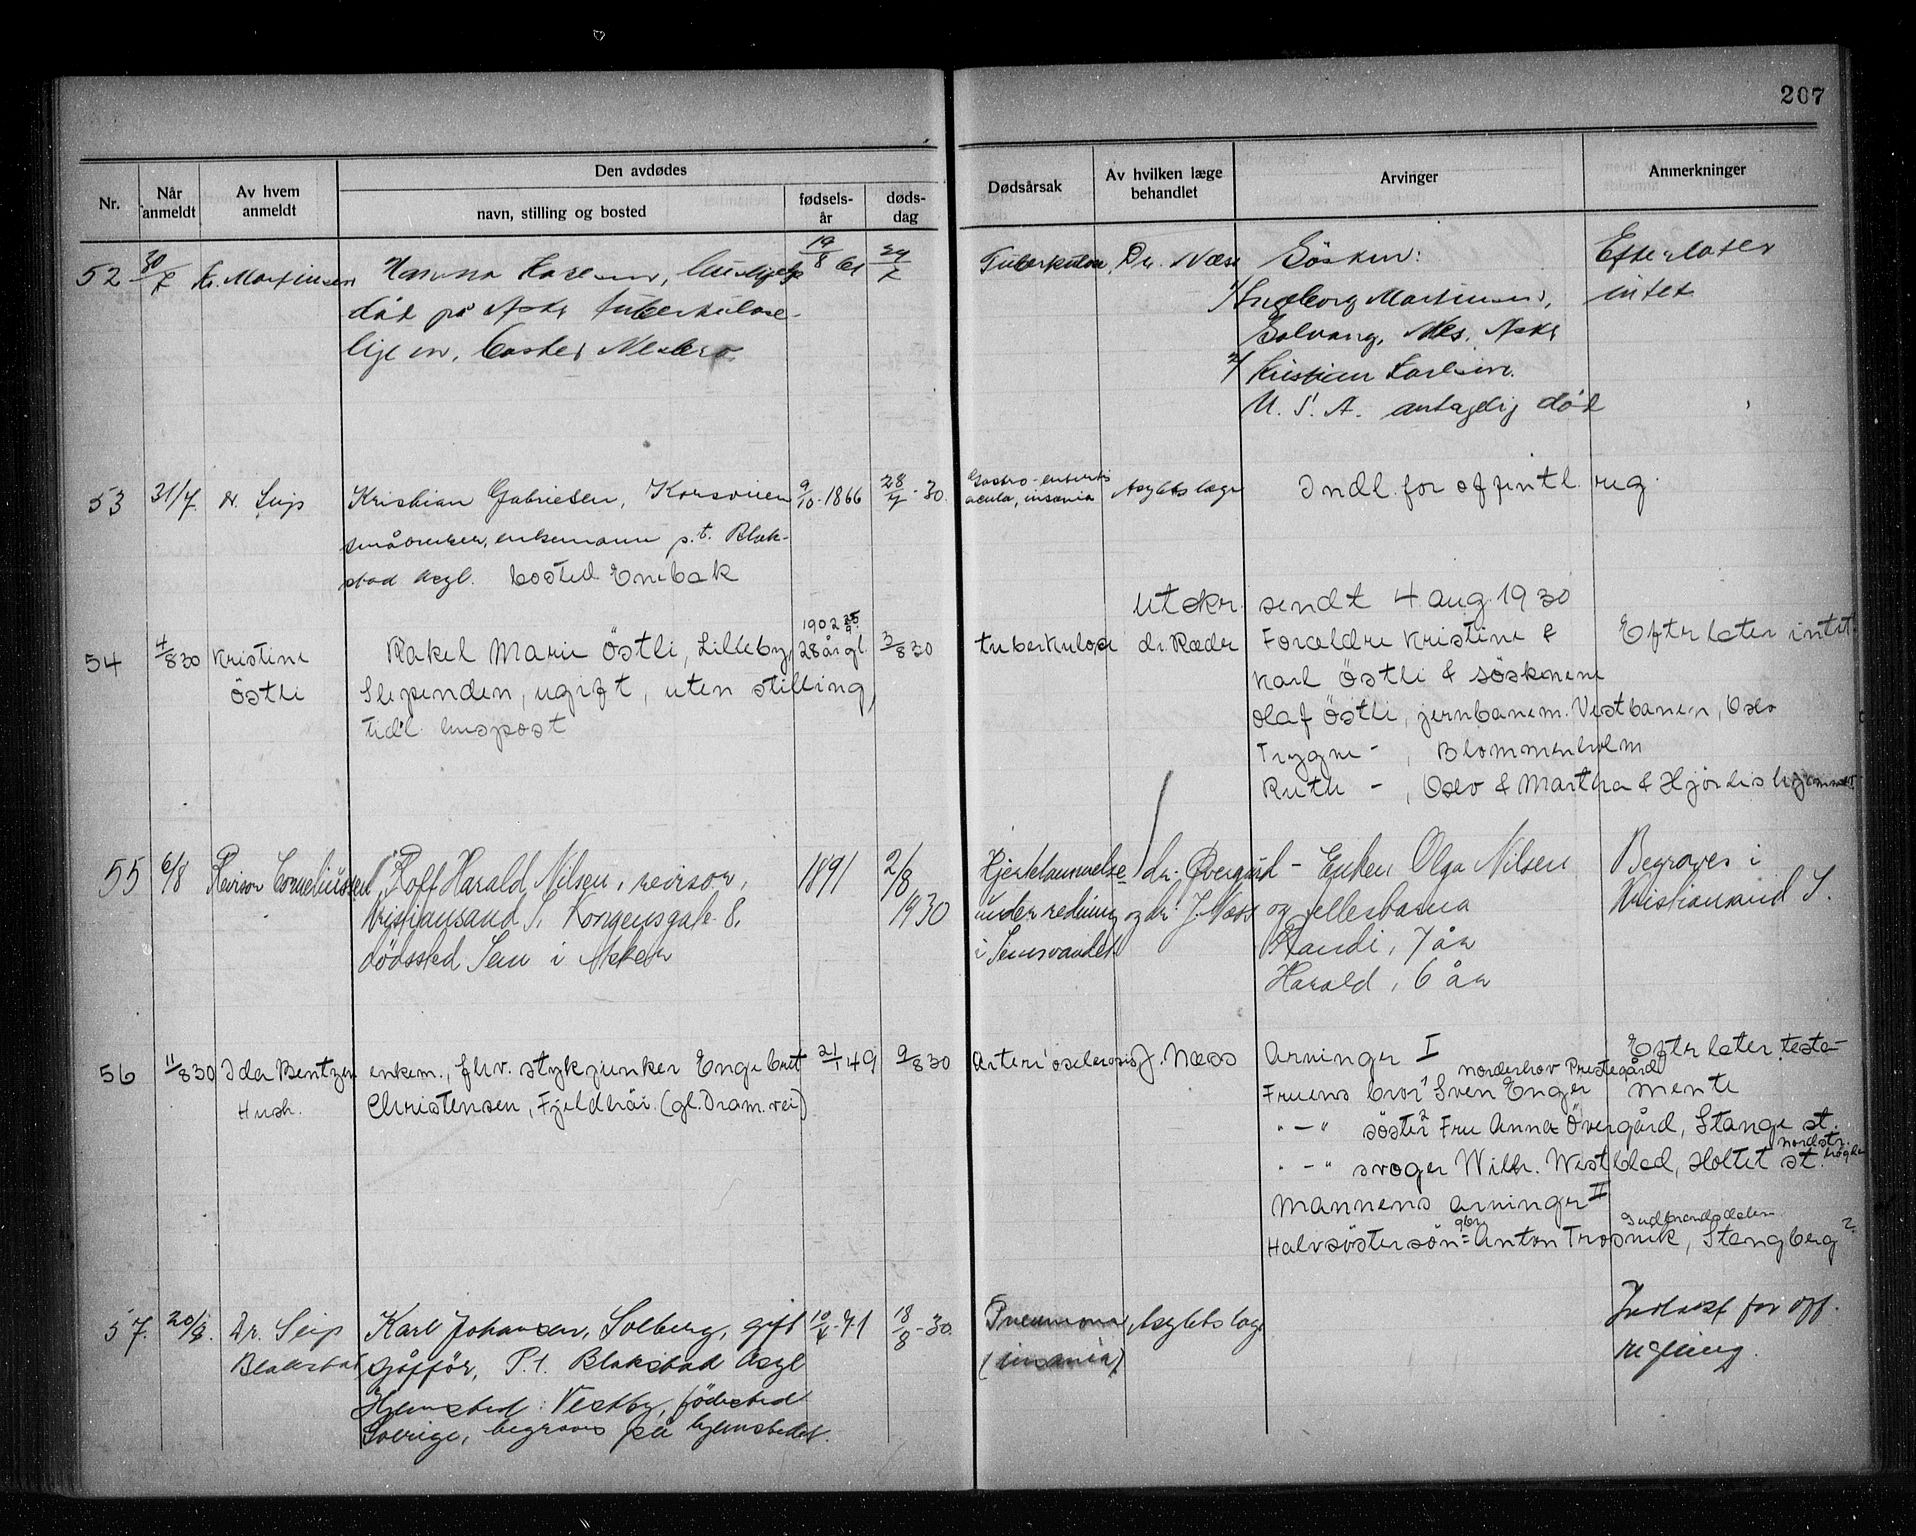 207
Nr.
Når anmeldt
Av hvem anmeldt
Den avdødes
navn, stilling og bosted
fødsels-år
døds-dag
Dødsårsak
Av hvilken læge behandlet
Arvinger
Anmerkninger
52 30/7 Martinsen
19/8 61 29/7
død på Asker tuberkulose-
bosted Nesbru
Tuberkulose Dr. Næss
Søsken:
1/ Ingeborg Martinsen,
Solvang, Nes, Asker
2/ Kristian Karlsen
U.S.A. antagelig død
Efterlater
intet
53 31/7 dr. Seip
Kristian Gabrielsen, Korsveien
småbruker, enkemann p.t. Blak-
stad Asyl. bosted Enebak
9/10-1866 28/7-30.
Gastro-enteritis
acuta, insania
Asylets læge
Indl. for offentl. reg.
utskr. sendt 4 aug. 1930
54 4/8 30 Kristine
Östli
Rakel Marie Östli, Lilleby,
Slependen, ugift, uten stilling,
tidl. huspost
1902 25/9
28 år gl. 3/8 30
tuberkulose dr. Ræder
Forældre Kristine &
Karl Östli & söskenene
Olaf Östli, jernbanem. Vestbanen, Oslo
Trygve - , Blommenholm
Ruth - , Oslo & Martha & Hjördis hjemmev.
55 6/8 Revisor Corneliussen
Rolf Harald Nilsen, revisor,
Kristiansand S. Kongensgate 8.
dødssted Sem i Asker
1891 2/8
1930
Hjertelammelse
under redning
i Semsvandet
dr. Øvergård
og dr. J. Næss
- Enken Olga Nilsen
og fellesbarna
Randi, 7 år
Harald, 6 år
Begraves i
Kristiansand S.
56 11/8 30 Ida Bentzen
Hush.
enkem., fhv. stykjunker Engebret
Christensen, Fjeldhöi (gl. Dram. vei)
21/1 49 9/8 30
Arteriosclerosis J. Næss
Arvinger I
Norderhov Prestegård
Fruens bror 1 Sven Enger
" - " söster 2 Fru Anna Övergård, Stange st.
" - " svoger Wilh. Westblad, Holtet st. Nordstr.
Mannens arvinger II
Halvsöstersön Anton Trosvik, Stengberg ?
Gudbrandsdalen
Efterlater testa-
mente
57. 20/8. Dr. Seip
Blakstad
Karl Johansen, Solberg, gift
sjåfför, P.t. Blakstad Asyl
Hjemsted: Vestby, födested
Sverige, begraves på hjemstedet.
18/8-30.
Pneumonia
(insania)
Asylets læge
Indlagt for off.
regning.